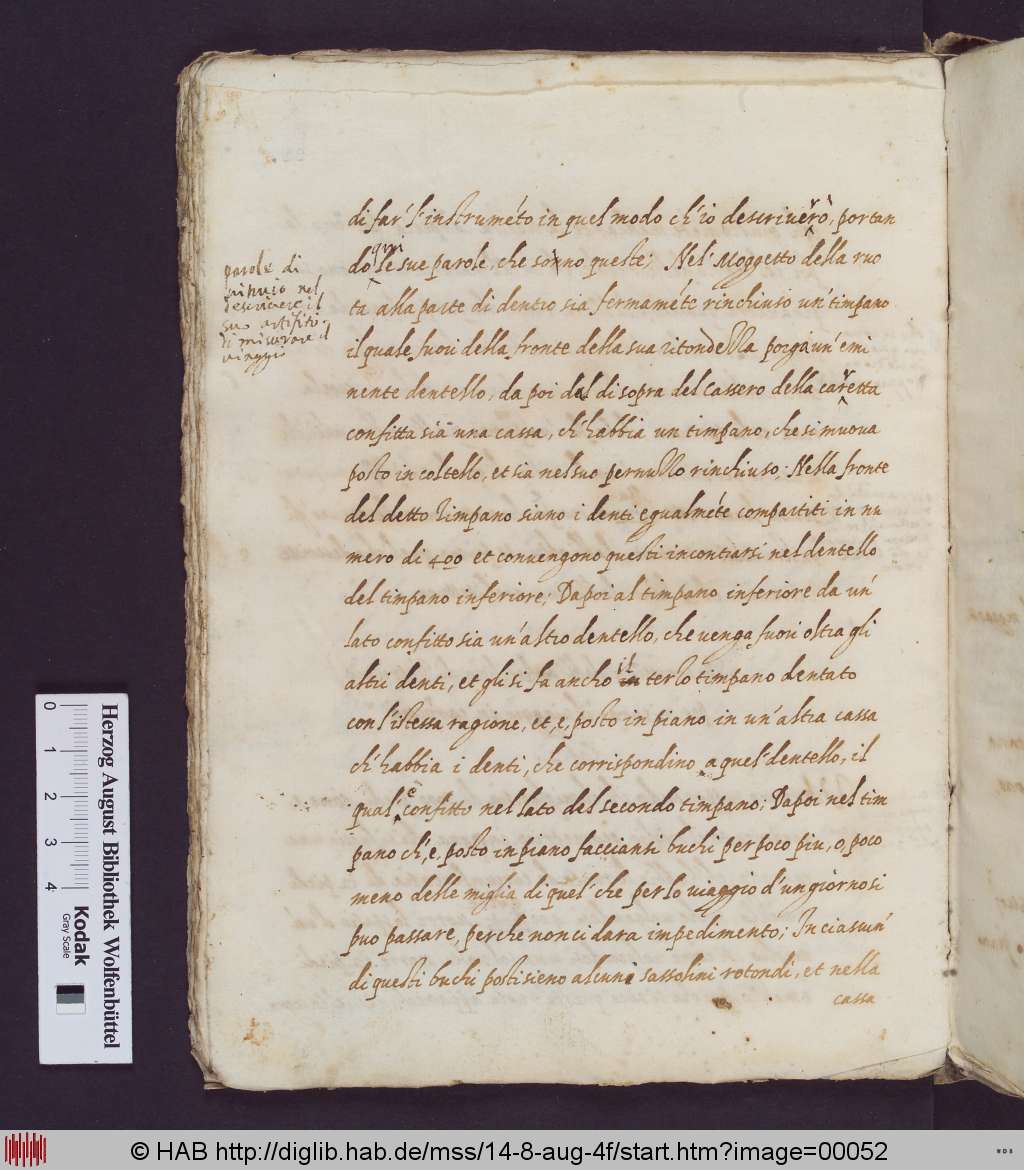 parole di
vitruvio nel
descrivere il
suo artifitio
di misurare il
viaggio
di far' l'instrumẽto in quel modo ch'io descriverrò, portan
do qui le sue parole, che sonno queste; Nel' Moggetto della ruo
ta alla parte di dentro sia fermamẽte rinchiuso un' timpano
il quale fuori della fronte della sua ritondella porga un' emi
nente dentello, da poi dal di sopra del Cassero della carretta
confitta sia una cassa, ch'habbia un timpano, che si muova
posto in coltello, et sia nel suo pernullo rinchiuso; Nella fronte
del detto Timpano siano i denti egualmẽte compartiti in nu
mero di 400 et convengono questi incontrarsi nel dentello
del timpano inferiore; Dapoi al timpano inferiore da un'
lato confitto sia un'altro dentello, che venga fuori oltra gli
altri denti, et gli si fa ancho il terzo timpano dentato
con l'istessa ragione, et, e, posto in piano in un'altra cassa
ch'habbia i denti, che corrispondino a quel' dentello, il
qual' è confitto nel lato del secondo timpano; Dapoi nel tim
pano ch', e, posto in piano facciansi buchi per poco piu, o, poco
meno delle miglia di quel' che per lo viaggio d'un giorno si
puo passare, perche non ci dara impedimento; In ciascun'
di questi buchi posti sieno alcuni sassolini rotondi, et nella
cassa
Herzog August Bibliothek Wolfenbüttel
Kodak
Gray Scale
0 1 2 3 4
© HAB http://diglib.hab.de/mss/14-8-aug-4f/start.htm?image=00052